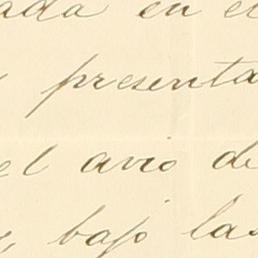 ada en el
presenta
el avio de
bajo las